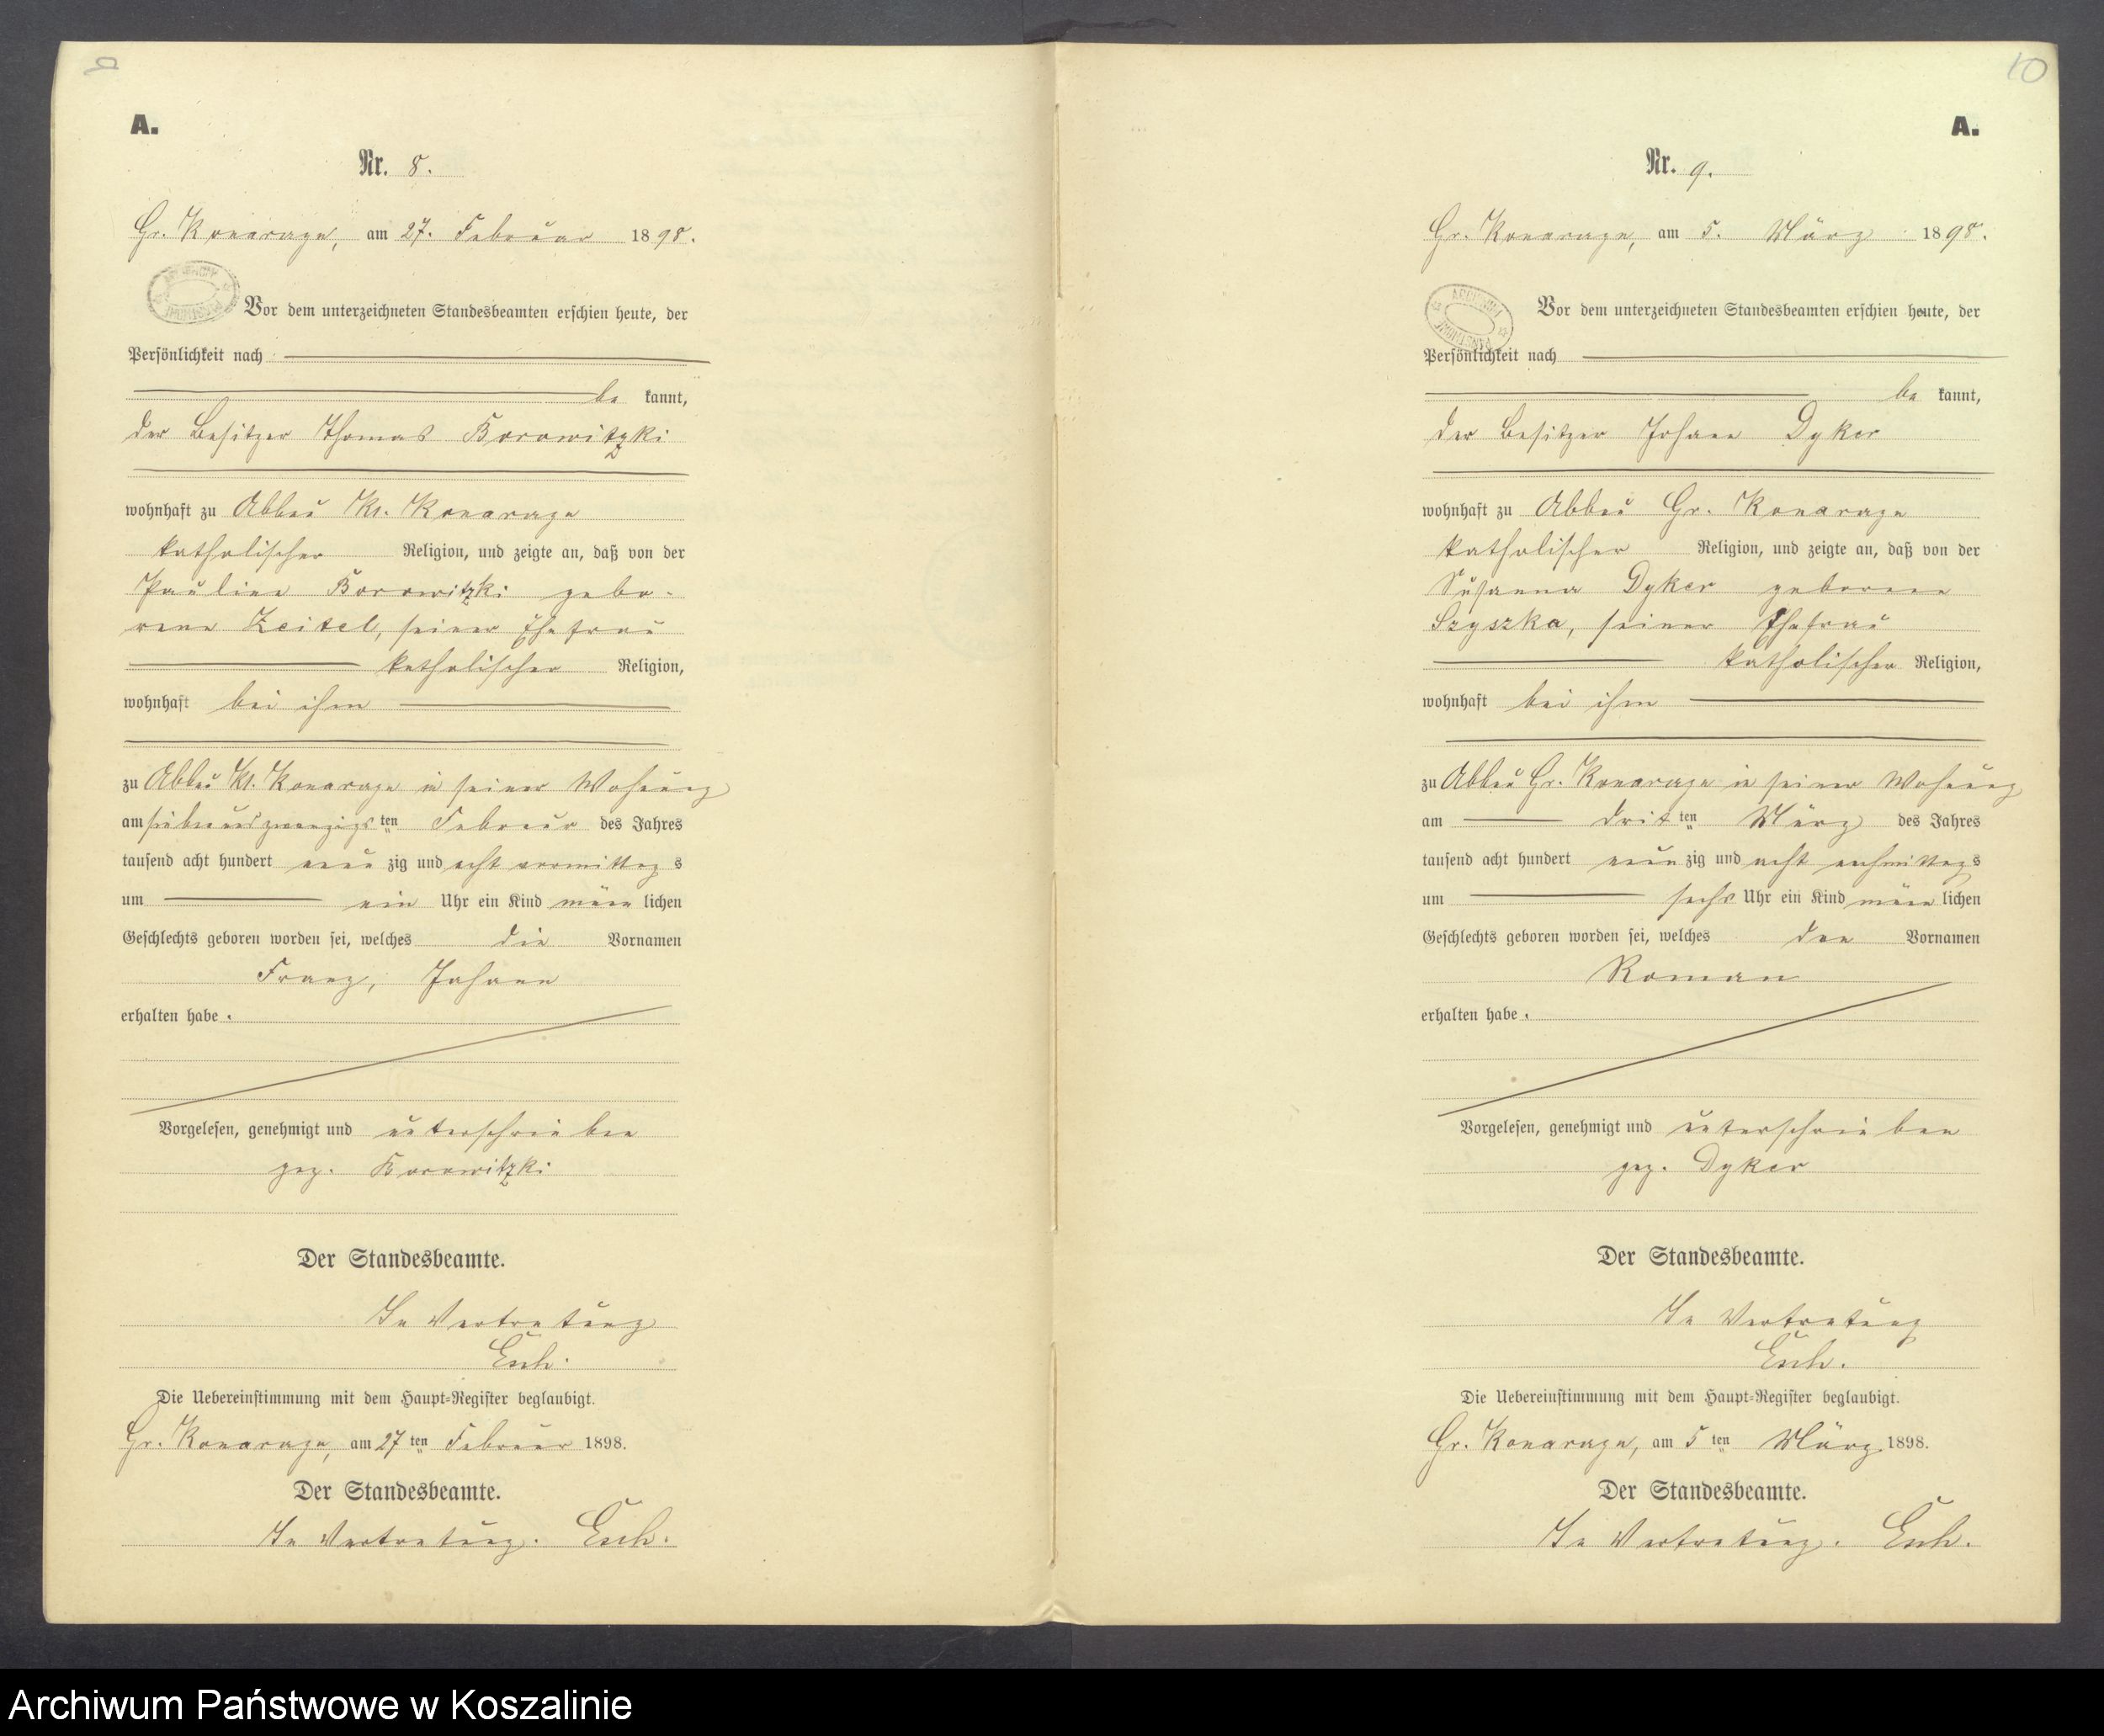 9
A.
Nr. 8.
Gr. Konarzyn, am 27. Februar 1898.
Vor dem unterzeichneten Standesbeamten erschien heute, der
Persönlichkeit nach
be kannt,
der Besitzer Thomas Borowitzki
wohnhaft zu Abbau Kl. Konarczyn
katholischer Religion, und zeigte an, daß von der
Pauline Borowitzki gebo-
rene Zeitel, seiner Ehefrau
katholischer Religion,
wohnhaft bei ihm
zu Abbau Kl. Konarczyn in seiner Wohnung
am siebenundzwanzigsten Februar des Jahres
tausend acht hundert neunzig und acht vormittags
um ein Uhr ein Kind männlichen
Geschlechts geboren worden sei, welches die Vornamen
Franz, Johann
erhalten habe.
Vorgelesen, genehmigt und unterschrieben
gez. Borowitzki
Der Standesbeamte.
In Vertretung
Esch.
Die Uebereinstimmung mit dem Haupt-Register beglaubigt.
Gr. Konarzyn, am 27ten Februar 1898.
Der Standesbeamte.
In Vertretung. Esch.
10
A.
Nr. 9.
Gr. Konarzyn, am 5. März 1898.
ARCHIWUM PAŃSTWOWE
Vor dem unterzeichneten Standesbeamten erschien heute, der
Persönlichkeit nach
be kannt,
der Besitzer Johann Dyker
wohnhaft zu Abbau Gr. Konarzyn
katholischer Religion, und zeigte an, daß von der
Susanna Dyker geborene
Szyszka, seiner Ehefrau
katholischer Religion,
wohnhaft bei ihm
zu Abbau Gr. Konarzyn in seiner Wohnung
am dritten März des Jahres
tausend acht hundert neunzig und acht nachmittags
um sechs Uhr ein Kind männlichen
Geschlechts geboren worden sei, welches den Vornamen
Roman
erhalten habe.
Vorgelesen, genehmigt und unterschrieben
gez. Dyker
Der Standesbeamte.
In Vertretung
Esch.
Die Uebereinstimmung mit dem Haupt-Register beglaubigt.
Gr. Konarzyn, am 5ten März 1898.
Der Standesbeamte.
In Vertretung. Esch.
Archiwum Państwowe w Koszalinie